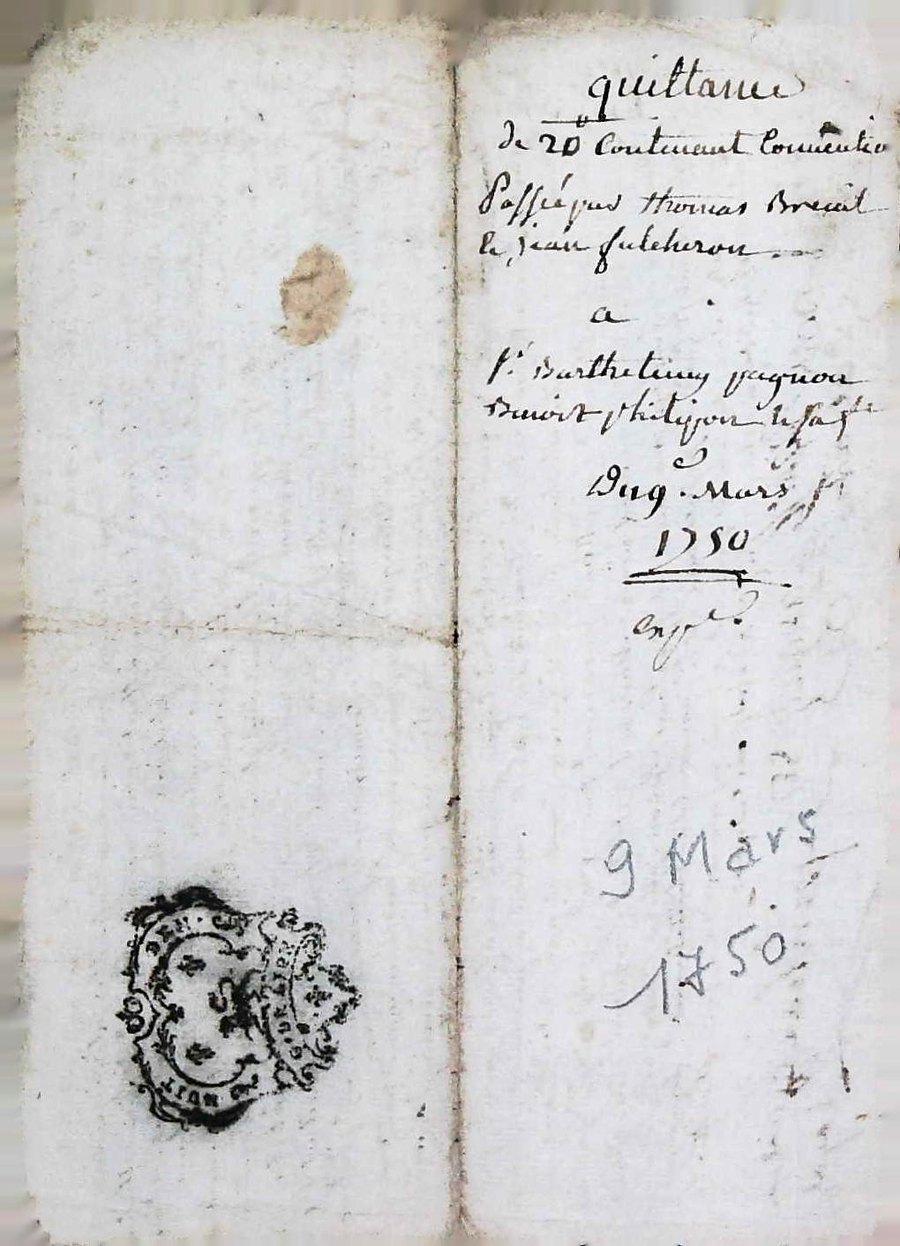 quittance
de 20 Contenant Convention
Passé par thomas Breuil
et jean fulcheron
a
Barthelemy pagnon
Benoit philipon
Du 9e. Mars
1750
9 Mars
1750
DEN. HUIT